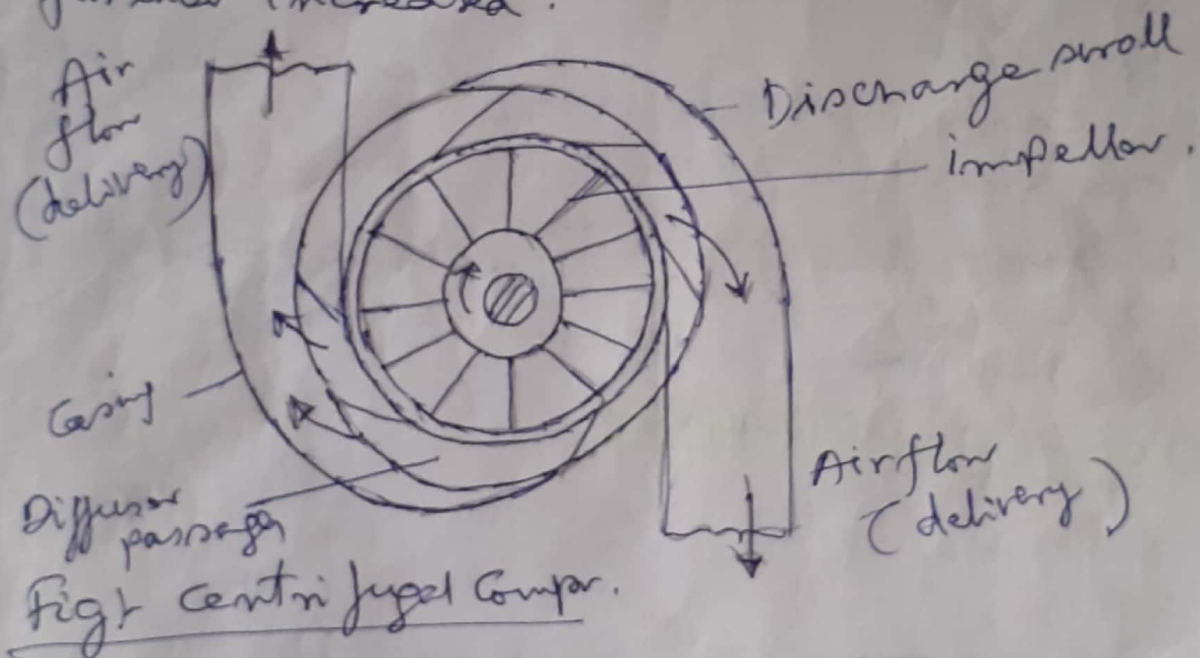 increased.
Air
flow
(delivery)
Discharge scroll
impeller.
Casing
Diffuser
passage
Airflow
(delivery)
Fig: Centrifugal Compr.